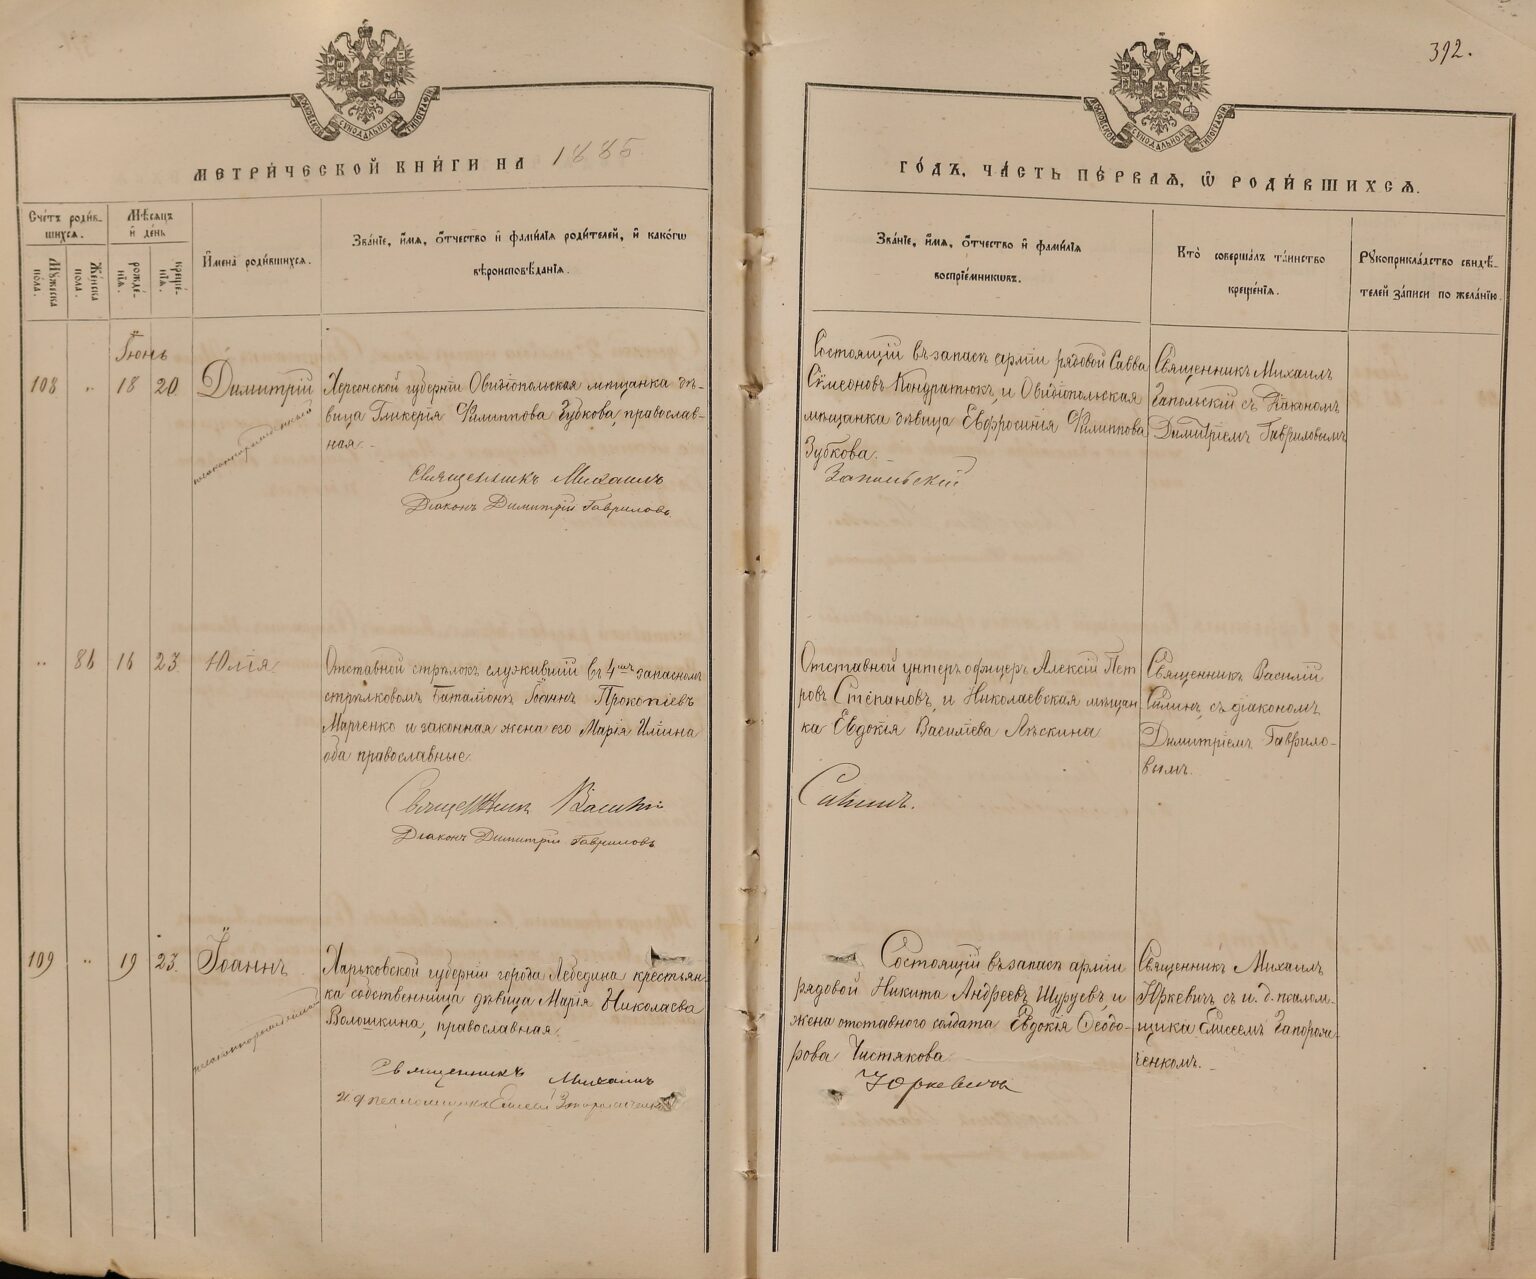 392.
МОСКОВСКОЙ СѴНОДАЛЬНОЙ ТИПОГРАФІИ
МОСКОВСКОЙ СѴНОДАЛЬНОЙ ТИПОГРАФІИ
МЕТРИ́ЧЕСКОЙ КНИ́ГИ НА 1885
ГО́ДЪ, ЧА́СТЬ ПЕ́РВАѦ, Ѡ҆ РОДИ́ВШИХСѦ.
Сче́тъ роди́в-
шихсѧ.
Мѣ́сѧцъ
и҆ де́нь
Мꙋ́жеска
пола.
Же́нска
пола.
рожде́-
нїѧ.
креще́-
нїѧ.
И҆мена̀ роди́вшихсѧ.
Зва́нїе, и҆́мѧ, ѻ҆́тчество и҆ фами́лїѧ роди́телей, и҆ како́гѡ
вѣроисповѣ́данїѧ.
Зва́нїе, и҆́мѧ, ѻ҆́тчество и҆ фами́лїѧ
воспрїе́мникѡвъ.
Кто̀ соверша́лъ та́инство
креще́нїѧ.
Рꙋкоприкла́дство свидѣ́-
телей за́писи по жела́нїю.
Іюнь
108 " 18 20 Димитрій
незаконнорожденный
Херсонской губерніи Овидіопольская мѣщанка дѣ-
вица Гликерія Филиппова Зубкова, православ-
ная.
Священникъ Михаилъ
Діаконъ Димитрій Гавриловъ
Состоящій въ запасѣ арміи рядовой Савва
Сѵмеоновъ Кондратюкъ, и Овидіопольская
мѣщанка дѣвица Евфросинія Филиппова
Зубкова.
Запольскій
Священникъ Михаилъ
Запольскій съ Діакономъ
Димитріемъ Гавриловымъ
" 86 16 23 Юлія
Отставной стрѣлокъ служившій въ 4мъ запасномъ
стрѣлковомъ баталіонѣ Іоаннъ Прокопіевъ
Марченко и законная жена его Марія Ильина
оба православные.
Священникъ Василій
Діаконъ Димитрій Гавриловъ
Отставной унтеръ офицеръ Алексій Пет
ровъ Степановъ, и Николаевская мѣщан
ка Евдокія Василіева Лѣскина
Силинъ.
Священникъ Василій
Силинъ, съ діакономъ
Димитріемъ Гаврило-
вымъ.
109 " 19 23. Іоаннъ
незаконнорожденный
Харьковской губерніи города Лебедина крестьян-
ка собственница дѣвица Марія Николаева
Волошкина, православная.
Священникъ Михаилъ
и д псаломщика Елисей Запорожченко
Состоящій въ запасѣ арміи
рядовой Никита Андреевъ Шуруевъ, и
жена отставного солдата Евдокія Ѳеодо-
рова Чистякова
Юркевичъ
Священникъ Михаилъ
Юркевичъ съ и. д. псалом-
щика Елисеемъ Запорож-
ченкомъ.